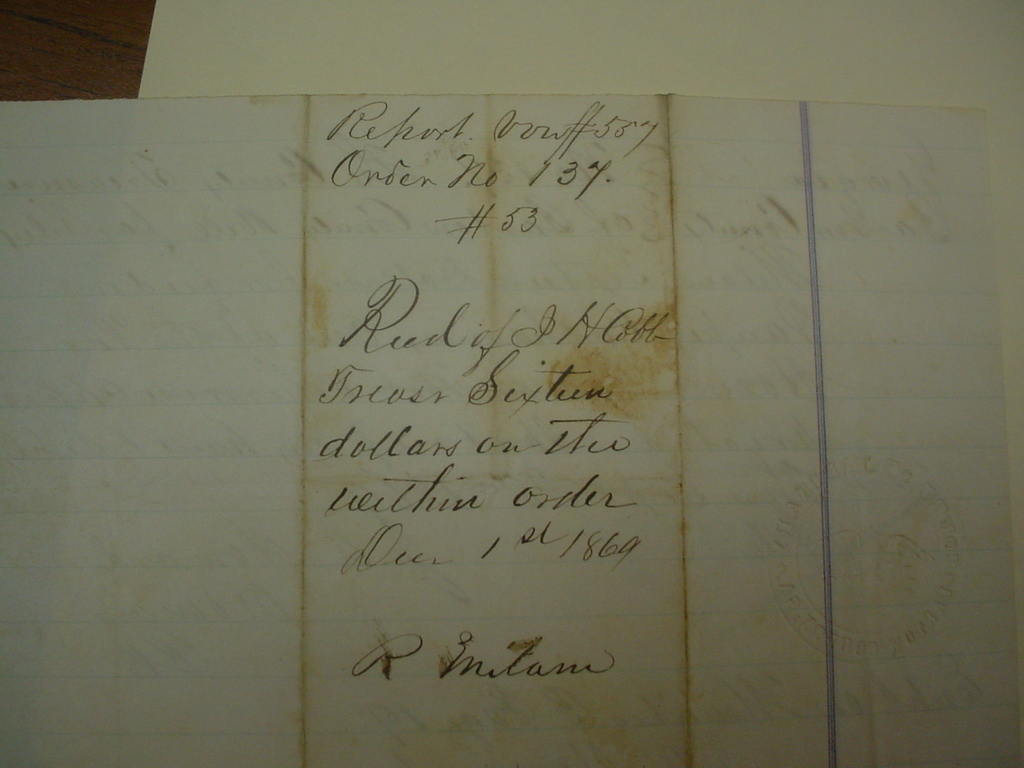 Report. vou # 557
Order No 137.
# 53
Recd of J H Cobb
Treasr Sixteen
dollars on the
within order
Decr 1st 1869
R Milam